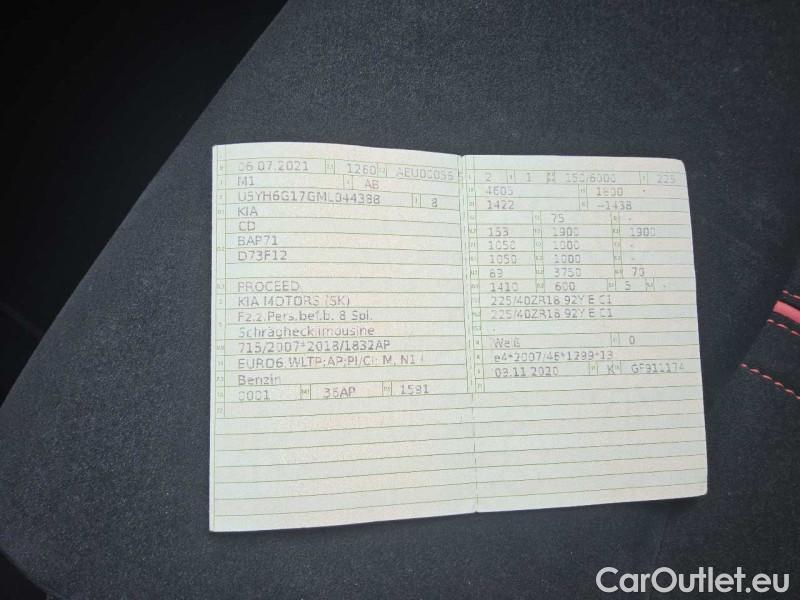 06.07.2021 1260 AEU00056
M1 AB
U5YH6G17GML044388 8
KIA
CD
BAP71
D73F12
PROCEED
KIA MOTORS (SK)
Fz.z.Pers.bef.b. 8 Spl.
Schräghecklimousine
715/2007*2018/1832AP
EURO6,WLTP;AP;PI/CI; M, N1 I
Benzin
0001 36AP 1591
2 1 150/6000 225
4605 1800 -
1422 -1438
75 -
153 1900 1900
1050 1000 -
1050 1000 -
69 3750 70
1410 600 5 -
225/40ZR18 92Y E C1
225/40ZR18 92Y E C1
-
Weiß 0
e4*2007/46*1299*13
09.11.2020 K GF911174
CarOutlet.eu